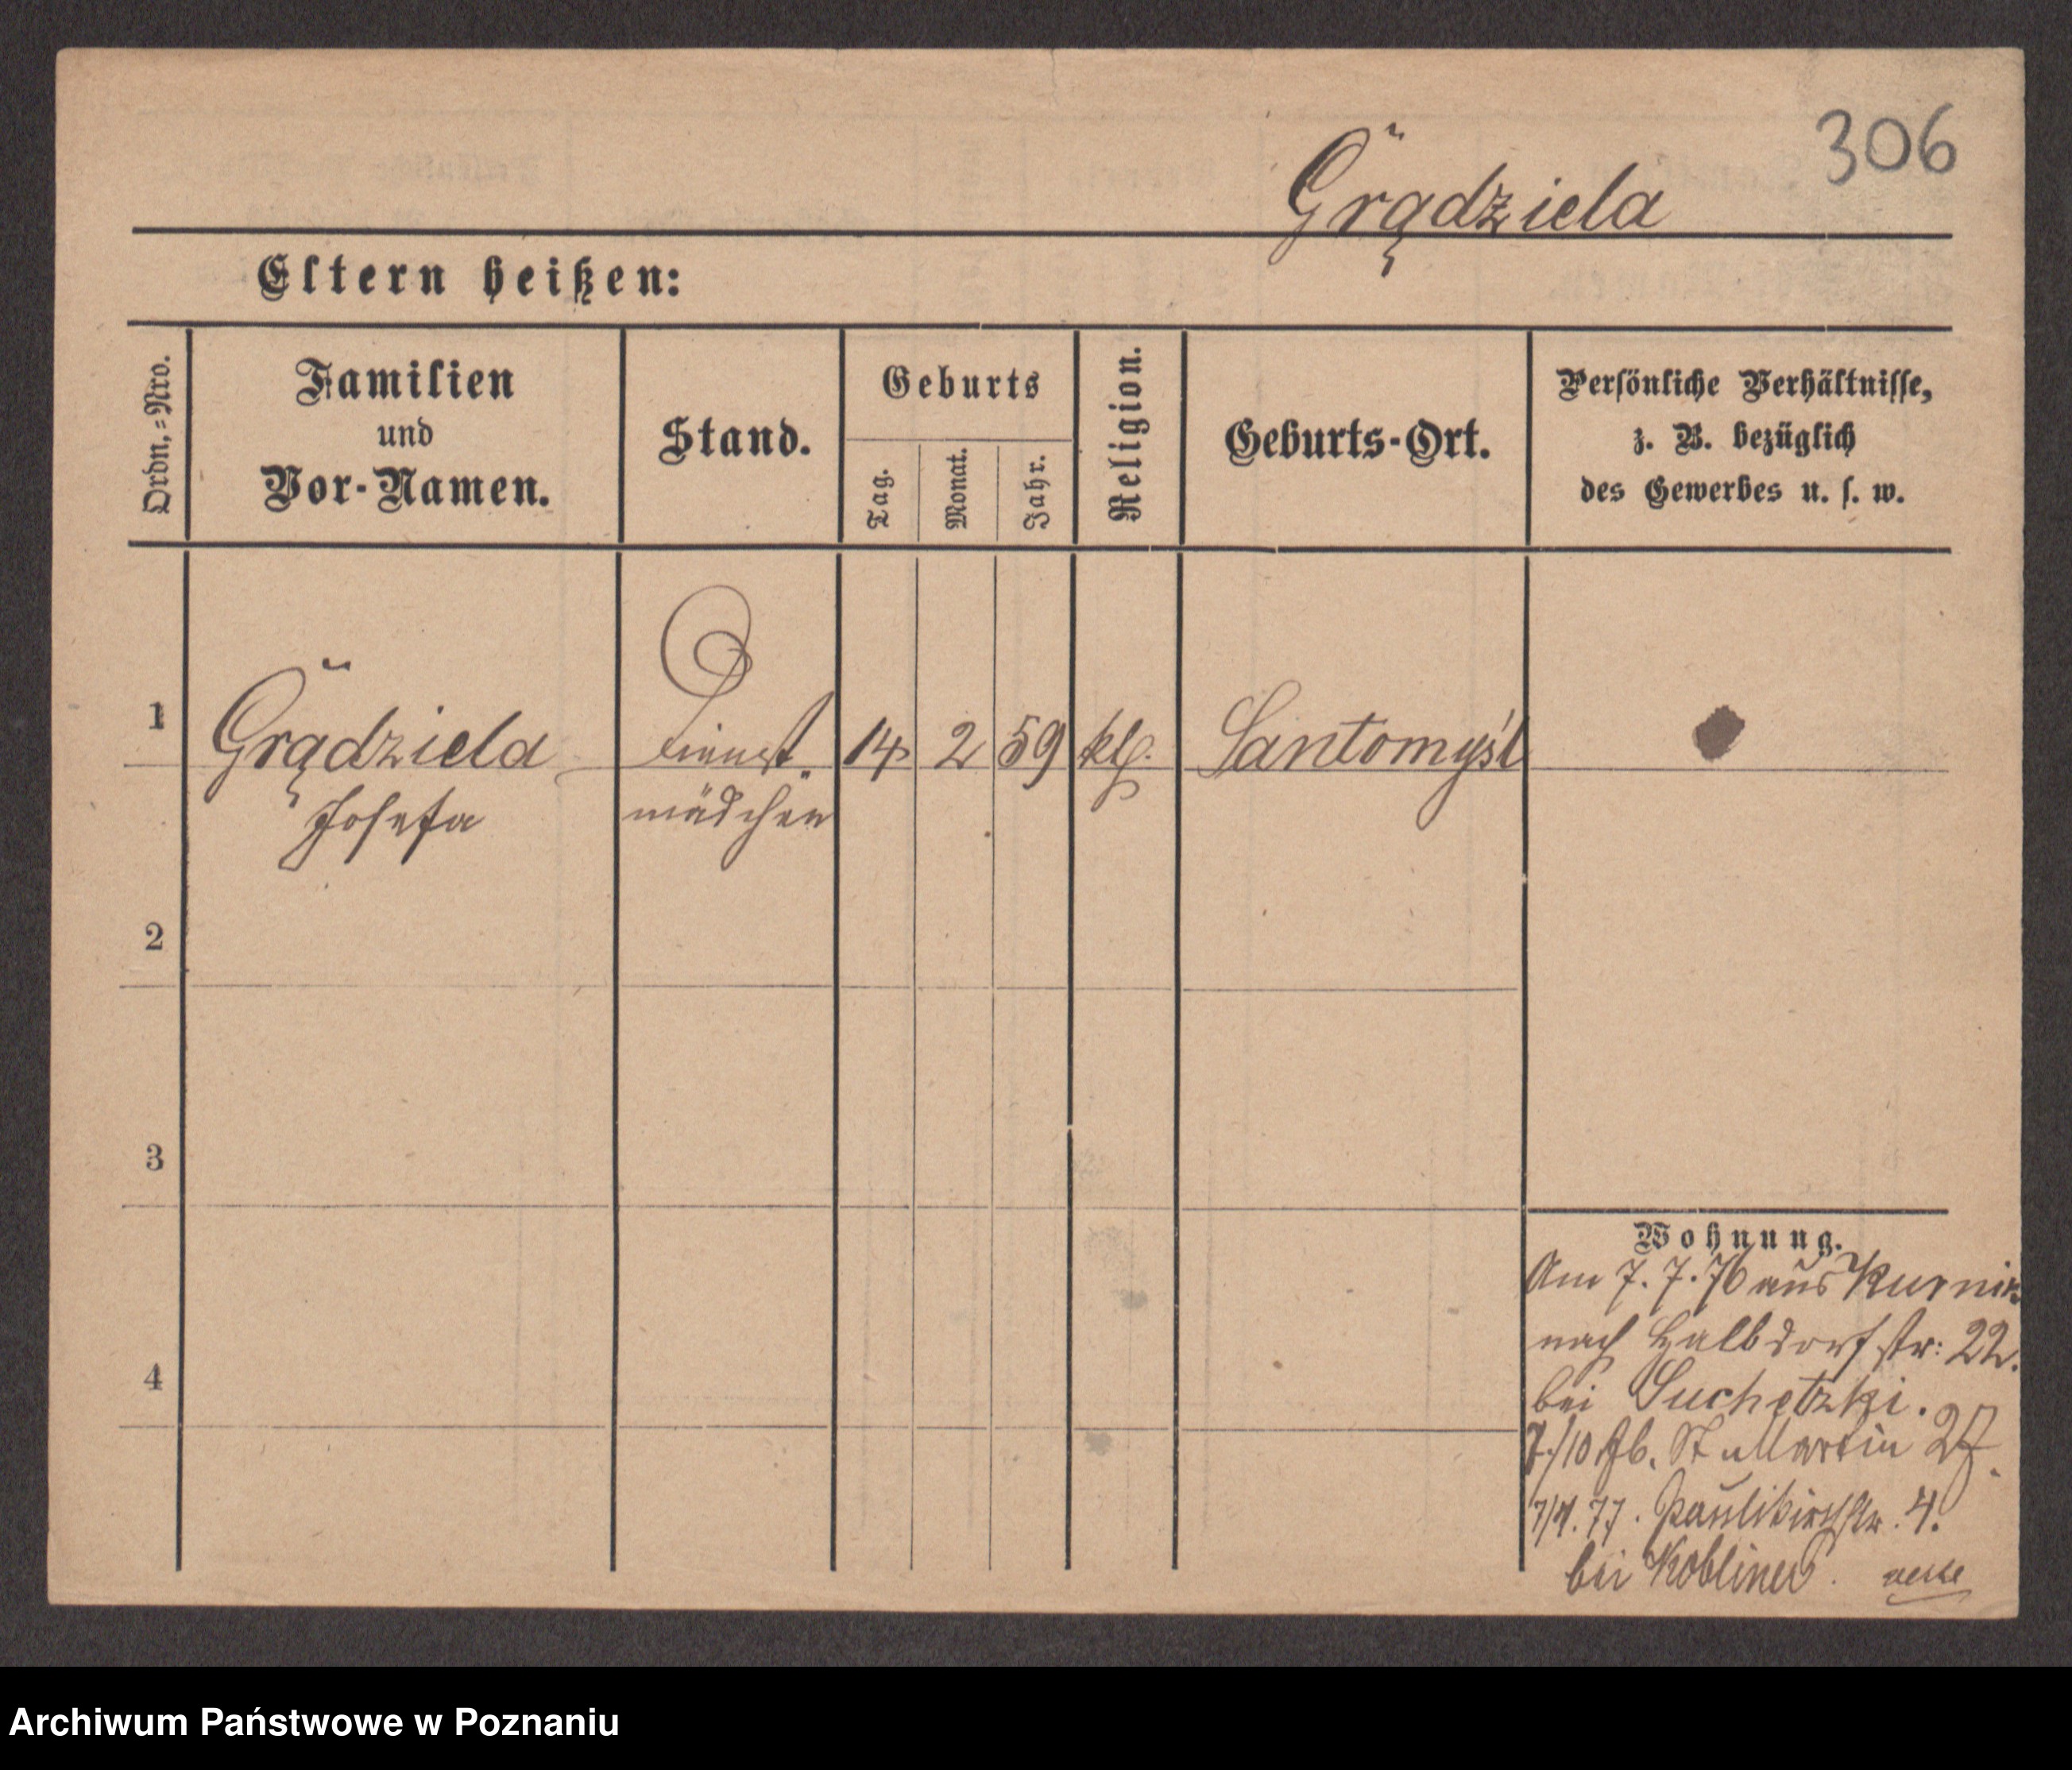 306
Grądziela
Eltern heißen:
Ordn.=Nro.
Familien
und
Vor-Namen.
Stand.
Geburts
Tag.
Monat.
Jahr.
Religion.
Geburts-Ort.
Persönliche Verhältnisse,
z. B. bezüglich
des Gewerbes u. s. w.
1
Grądziela
Josefa
Dienst
mädchen
14
2
59
kth.
Santomyśl
2
3
4
Wohnung.
Am 7. 7. 76 aus Kurnik
nach Halbdorfstr: 22.
bei Suchetzki.
7/10 St Martin 27.
77. Paulikirchstr. 4.
bei Kobliner.
Archiwum Państwowe w Poznaniu